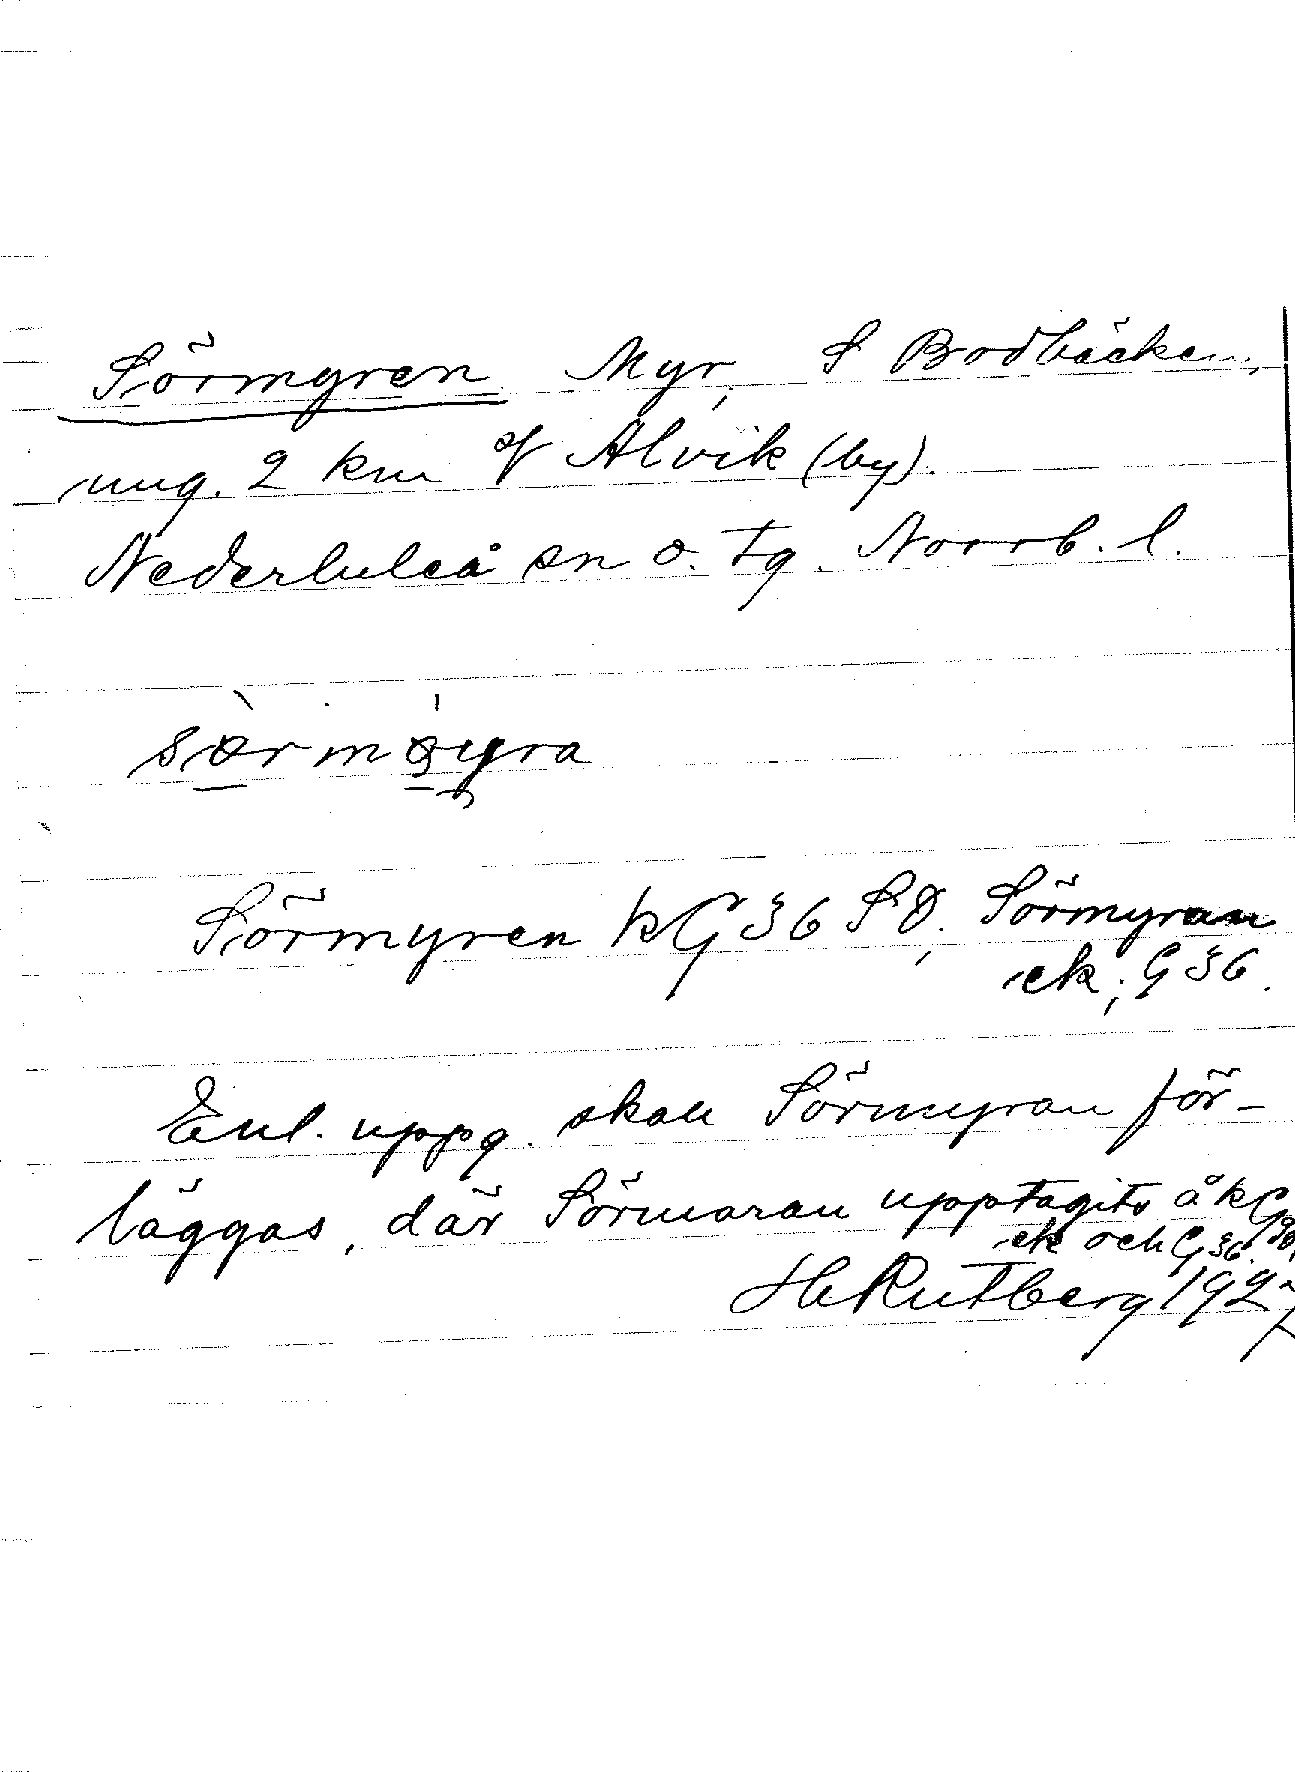 Sörmyren Myr, S Brodbäcken,
ung. 2 km af Alvik (by).
Nederluleå sn o. tg. Norrb. l.
sørmøyra
Sörmyren kG36 SO, Sörmyran
ek; G36.
Enl. uppg. skall Sörmyran för-
läggas, där Sörmaran upptagits å k
ek och G36.
H Rutberg 1927